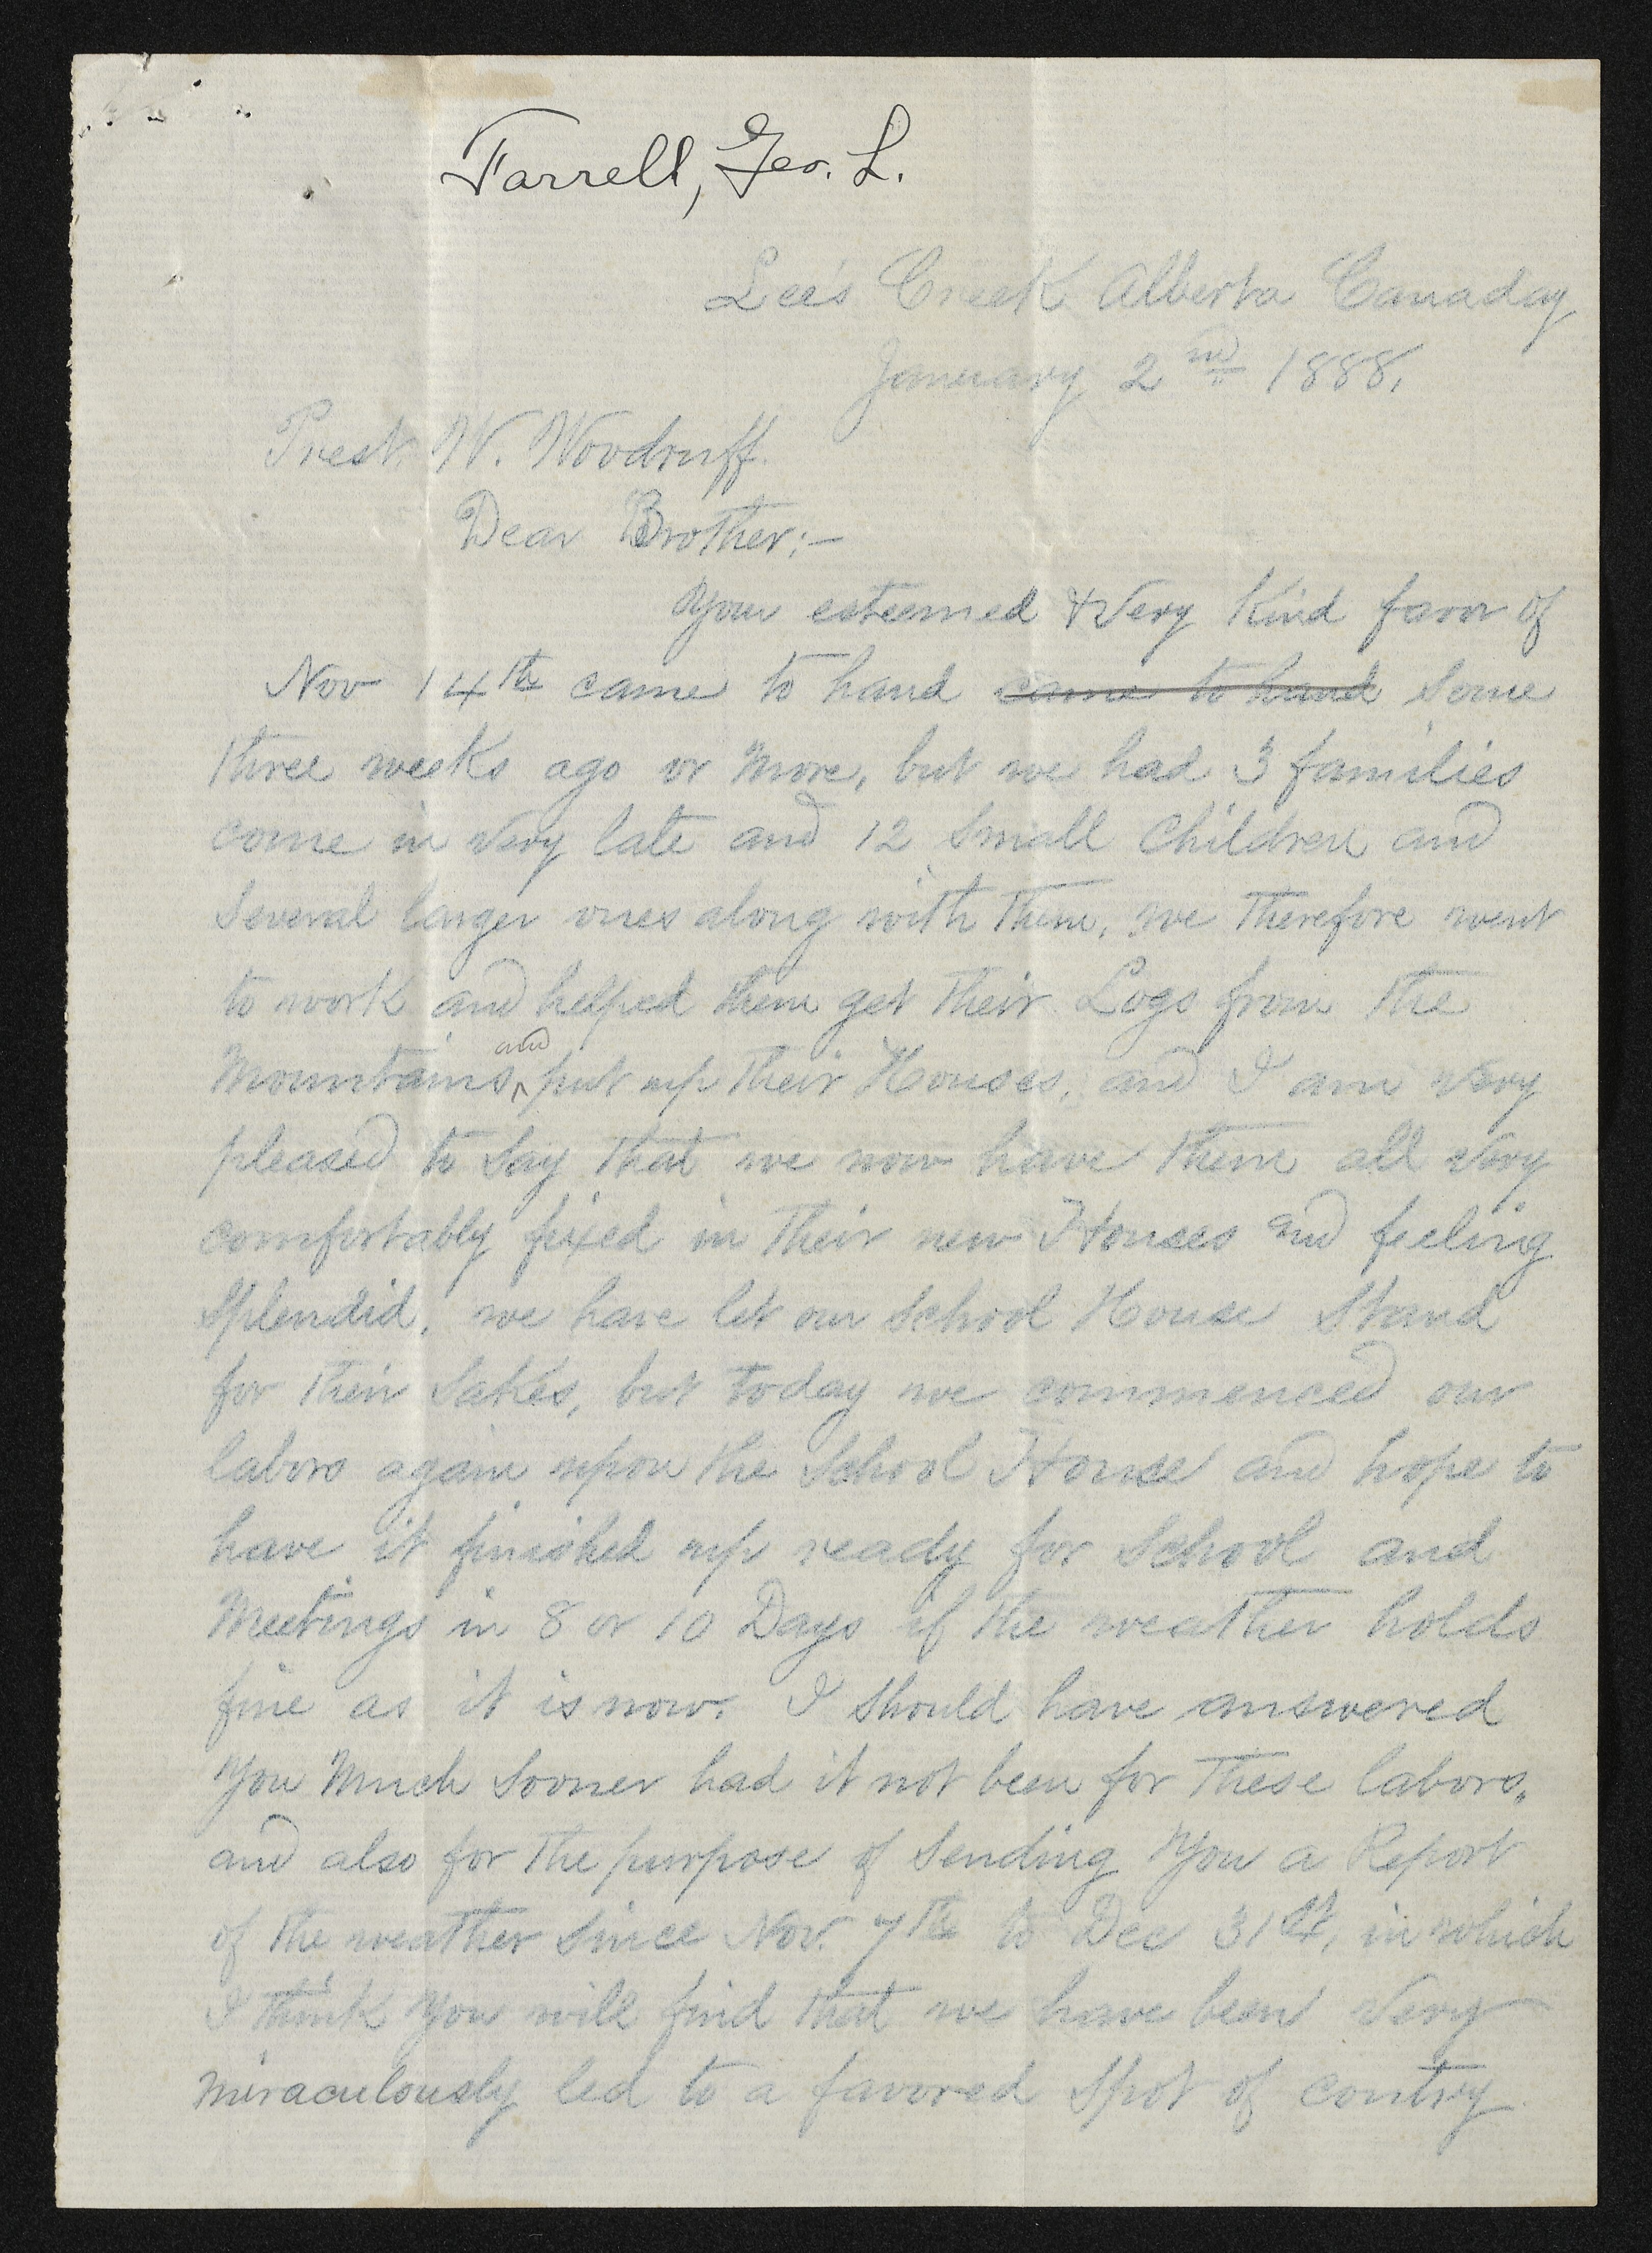 Farrell, Geo. L.
Lee's Creek Alberta Canaday
January 2nd 1888.
Prest. W. Woodruff.
Dear Brother:—
Your esteemed & Very Kind favor of
Nov 14th came to hand came to hand Some
three weeks ago or More, but we had 3 families
come in very late and 12 Small Children and
Several larger ones along with them, we therefore went
to work and helped them get their Logs from the
Mountains and put up their Houses, and I am very
pleased to Say that we now have them all very
comfortably fixed in their new Houses and feeling
Splendid, we have let our School House Stand
for their Sakes, but today we commenced our
labors again upon the School House and hope to
have it finished up ready for School and
Meetings in 8 or 10 Days if the weather holds
fine as it is now. I Should have answered
You Much Sooner had it not been for these labors,
and also for the purpose of Sending You a Report
of the weather Since Nov. 7th to Dec 31st, in which
I think You will find that we have been Very
Miraculously led to a favored Spot of contry